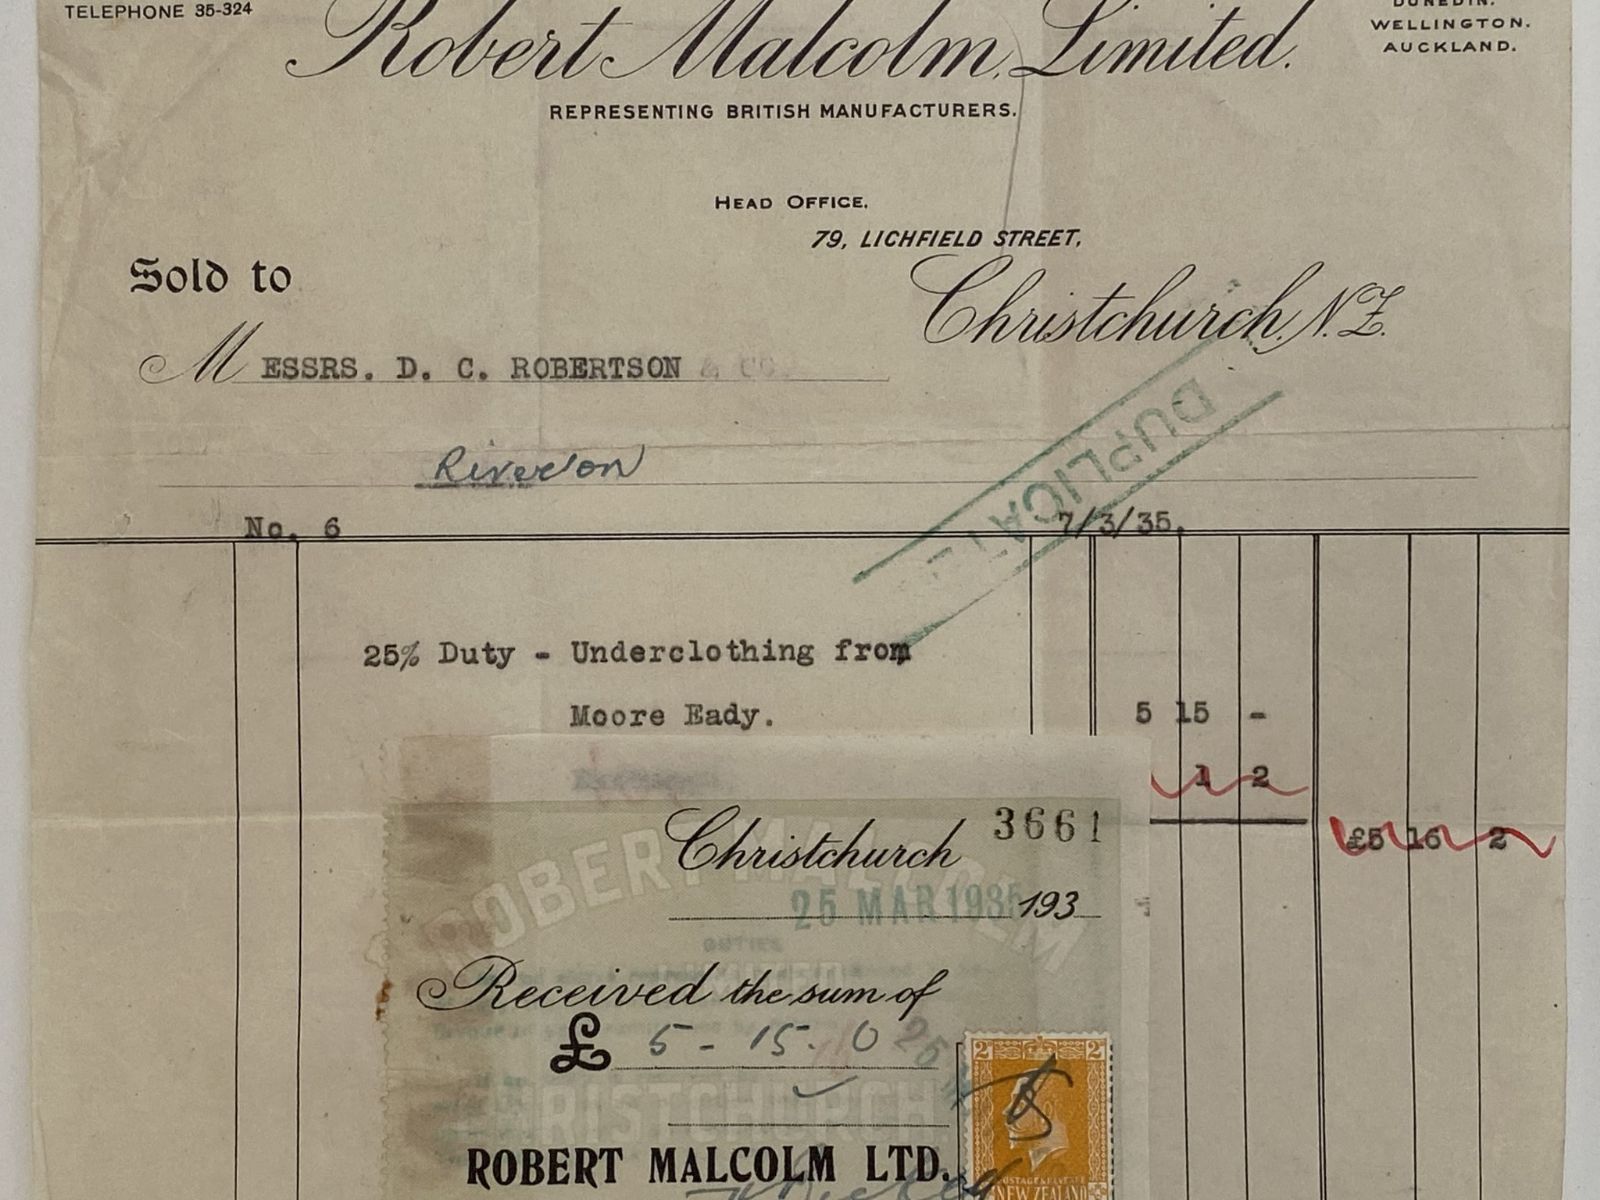 TELEPHONE 35-324
Robert Malcolm, Limited.
DUNEDIN.
WELLINGTON.
AUCKLAND.
REPRESENTING BRITISH MANUFACTURERS.
HEAD OFFICE,
79, LICHFIELD STREET,
Christchurch, N.Z.
Sold to
MESSRS. D. C. ROBERTSON & CO.
DUPLICATE
Riverton
No. 6 7/3/35.
25% Duty - Underclothing from
Moore Eady. 5 15 -
1 2
£5 16 2
3661
Christchurch
25 MAR 1935 193
ROBERT MALCOLM
LIMITED
Received the sum of
£ 5-15-0
CHRISTCHURCH
2 2
ROBERT MALCOLM LTD.
POSTAGE & REVENUE
NEW ZEALAND